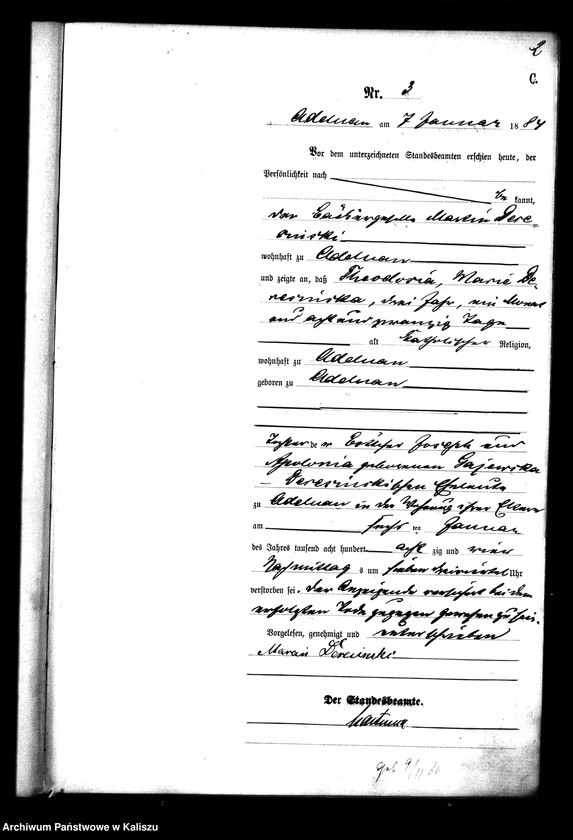 2
C.
Nr. 3
Adelnau am 7 Januar 1884
Vor dem unterzeichneten Standesbeamten erschien heute, der
Persönlichkeit nach
be kannt,
der Martin Dere-
sinski
wohnhaft zu Adelnau
und zeigte an, daß Theodosia, Marie De-
resinska, drei Jahr, ein Monat
und acht und zwanzig Tage
alt katholischer Religion,
wohnhaft zu Adelnau
geboren zu Adelnau
Tochter der Böttcher Joseph und
Apolonia geborenen Gajewska
Deresinskischen Eheleute
zu Adelnau in der Wohnung ihrer Eltern
am sechs ten Januar
des Jahres tausend acht hundert acht zig und vier
Nachmittag s um sieben dreiviertel Uhr
verstorben sei. Der Anzeigende versichert bei dem
erfolgten Tode zugegen gewesen zu sein.
Vorgelesen, genehmigt und unterschrieben
Marcin Deresinski
Der Standesbeamte.
Archiwum Państwowe w Kaliszu